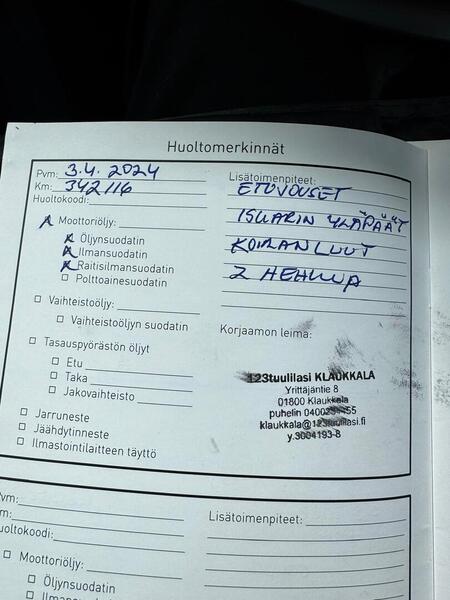 Huoltomerkinnät
Pvm: 3.4. 2024
Km: 342116
Huoltokoodi:
X Moottoriöljy:
X Öljynsuodatin
X Ilmansuodatin
X Raitisilmansuodatin
Polttoainesuodatin
Vaihteistoöljy:
Vaihteistoöljyn suodatin
Tasauspyörästön öljyt
Etu
Taka
Jakovaihteisto
Jarruneste
Jäähdytinneste
Ilmastointilaitteen täyttö
Lisätoimenpiteet:
ETUJOUSET
ISKARIN YLÄPÄÄT
KOIRANLUUT
2 HEHKUA
Korjaamon leima:
123tuulilasi KLAUKKALA
Yrittäjäntie 8
01800 Klaukkala
puhelin
klaukkala@123tuulilasi.fi
y.3004193-8
Pvm:
Km:
Huoltokoodi:
Moottoriöljy:
Öljynsuodatin
Lisätoimenpiteet: